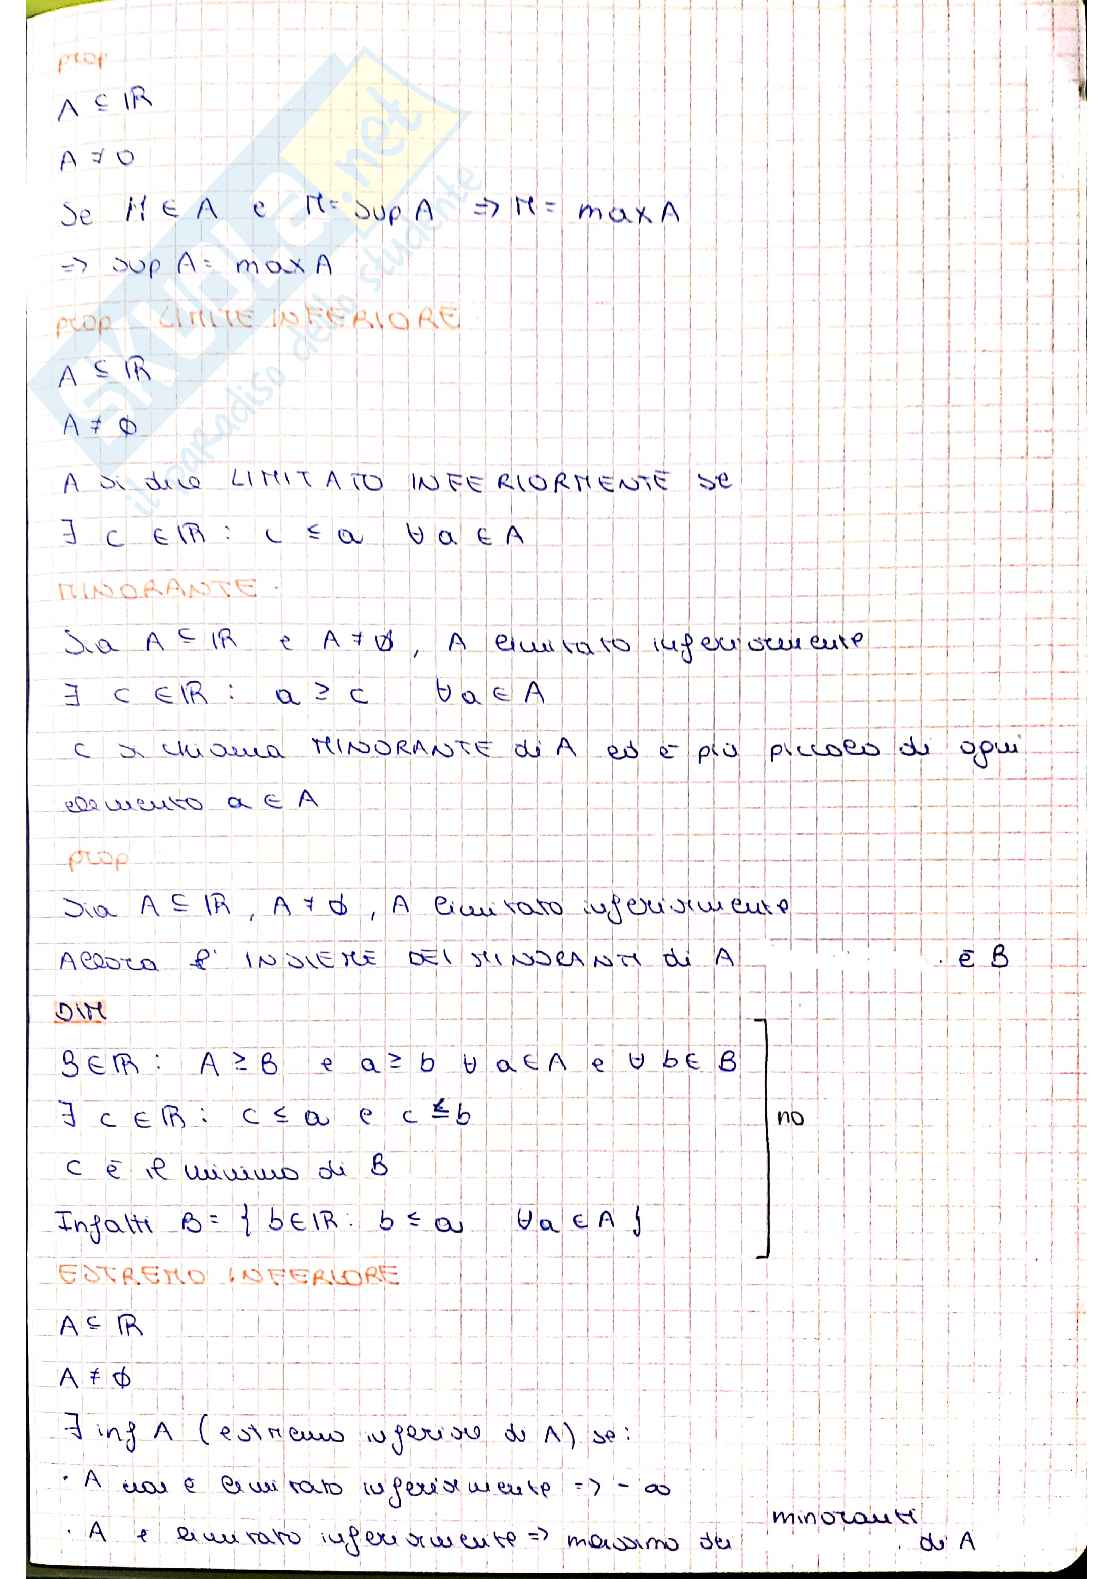 prop
A ⊆ ℝ
A ≠ 0
Se M ∈ A e M = sup A => M = max A
=> sup A = max A
prop LIMITE INFERIORE
A ⊆ ℝ
A ≠ ∅
A si dice LIMITATO INFERIORMENTE se
∃ c ∈ ℝ : c ≤ a ∀ a ∈ A
MINORANTE.
Sia A ⊆ ℝ e A ≠ ∅, A limitato inferiormente
∃ c ∈ ℝ : a ≥ c ∀ a ∈ A
c si chiama MINORANTE di A ed è più piccolo di ogni
elemento a ∈ A
prop
Sia A ⊆ ℝ, A ≠ ∅, A limitato inferiormente
Allora l' INSIEME DEI MINORANTI di A è B
DIM
B ∈ ℝ : A ≥ B e a ≥ b ∀ a ∈ A e ∀ b ∈ B
∃ c ∈ ℝ : c ≤ a e c ≤ b
no
c è il minimo di B
Infatti B = { b ∈ ℝ : b ≤ a ∀ a ∈ A }
ESTREMO INFERIORE
A ⊆ ℝ
A ≠ ∅
∃ inf A (estremo inferiore di A) se :
· A non è limitato inferiormente => - ∞
· A è limitato inferiormente => massimo dei minoranti di A
SKUOLA.net
il paradiso dello studente